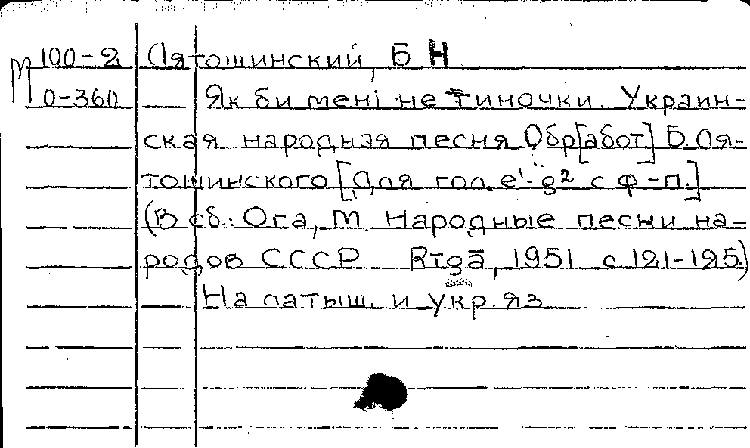 М 100-2 Лятошинский, Б Н
0-360 Як би менi не тиночки. Украин-
ская народная песня Обр[абот] Б. Ля-
тошинского [Для гол. e¹-g² с ф-п.]
(В сб.: Ога, М Народные песни на-
родов СССР Rīgā, 1951 с 121-125.)
На латыш. и укр. яз